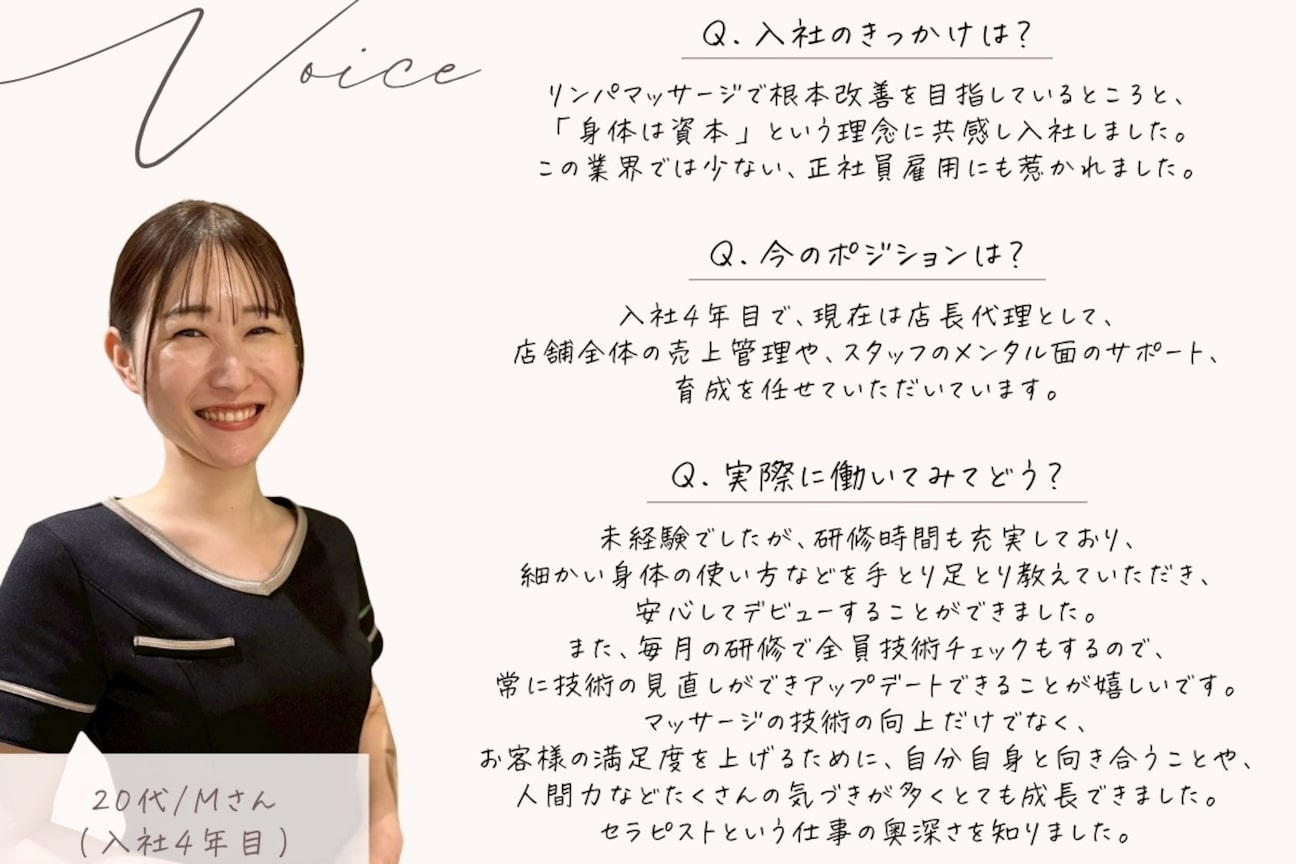 Voice
Q. 入社のきっかけは?
リンパマッサージで根本改善を目指しているところと、
「身体は資本」という理念に共感し入社しました。
この業界では少ない、正社員雇用にも惹かれました。
Q. 今のポジションは?
入社4年目で、現在は店長代理として、
店舗全体の売上管理や、スタッフのメンタル面のサポート、
育成を任せていただいています。
Q. 実際に働いてみてどう?
未経験でしたが、研修時間も充実しており、
細かい身体の使い方などを手とり足とり教えていただき、
安心してデビューすることができました。
また、毎月の研修で全員技術チェックもするので、
常に技術の見直しができアップデートできることが嬉しいです。
マッサージの技術の向上だけでなく、
お客様の満足度を上げるために、自分自身と向き合うことや、
人間力などたくさんの気づきが多くとても成長できました。
セラピストという仕事の奥深さを知りました。
20代/Mさん
(入社4年目)